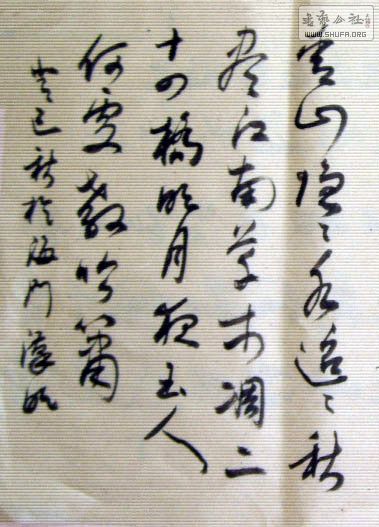 书艺公社
WWW.SHUFA.ORG
青山隐〻水迢〻秋
尽江南草木凋二
十四橋明月夜玉人
何处教吹簫
癸巳秋於海门